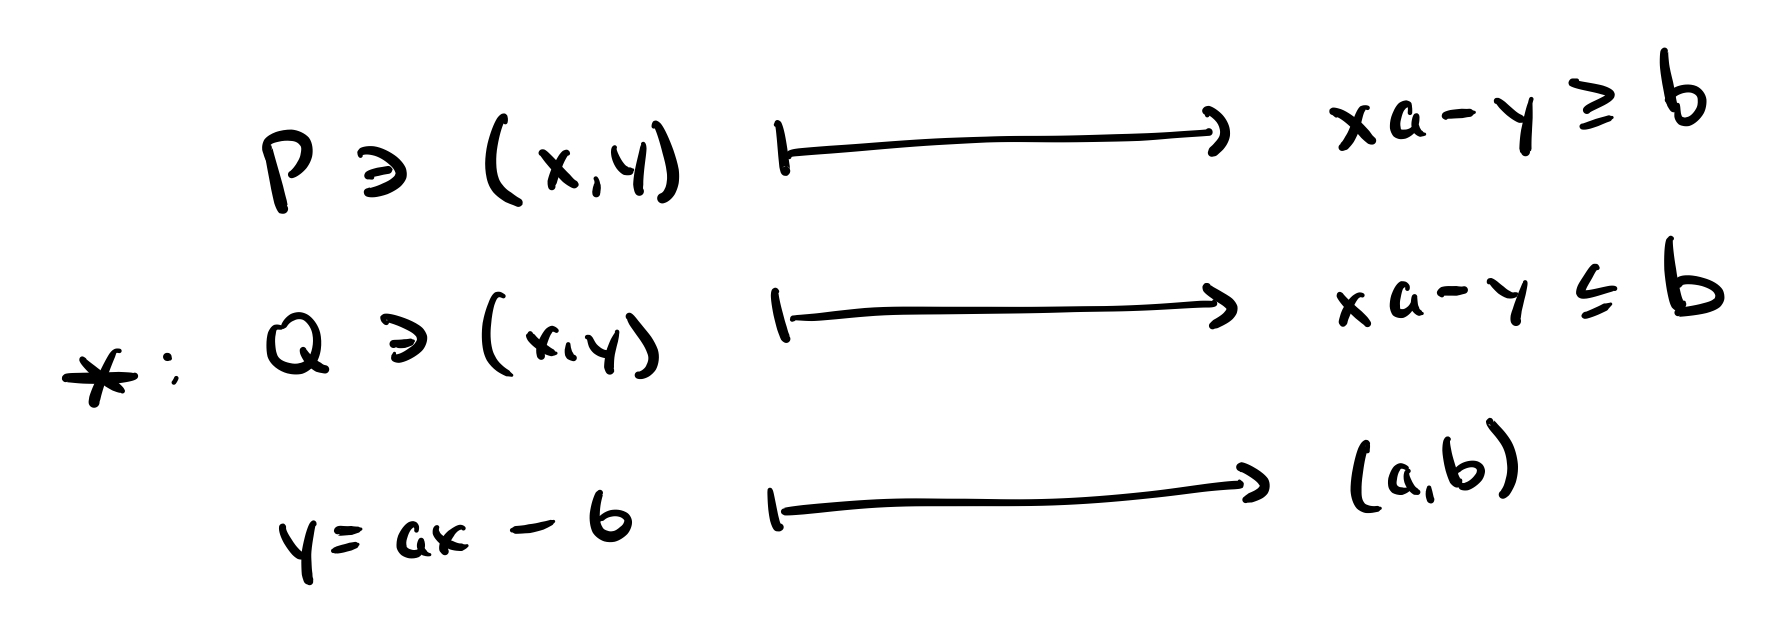 P ∋ (x,y) ⟼ xa - y ≥ b
Q ∋ (x,y) ⟼ xa - y ≤ b
*:
y = ax - b ⟼ (a,b)